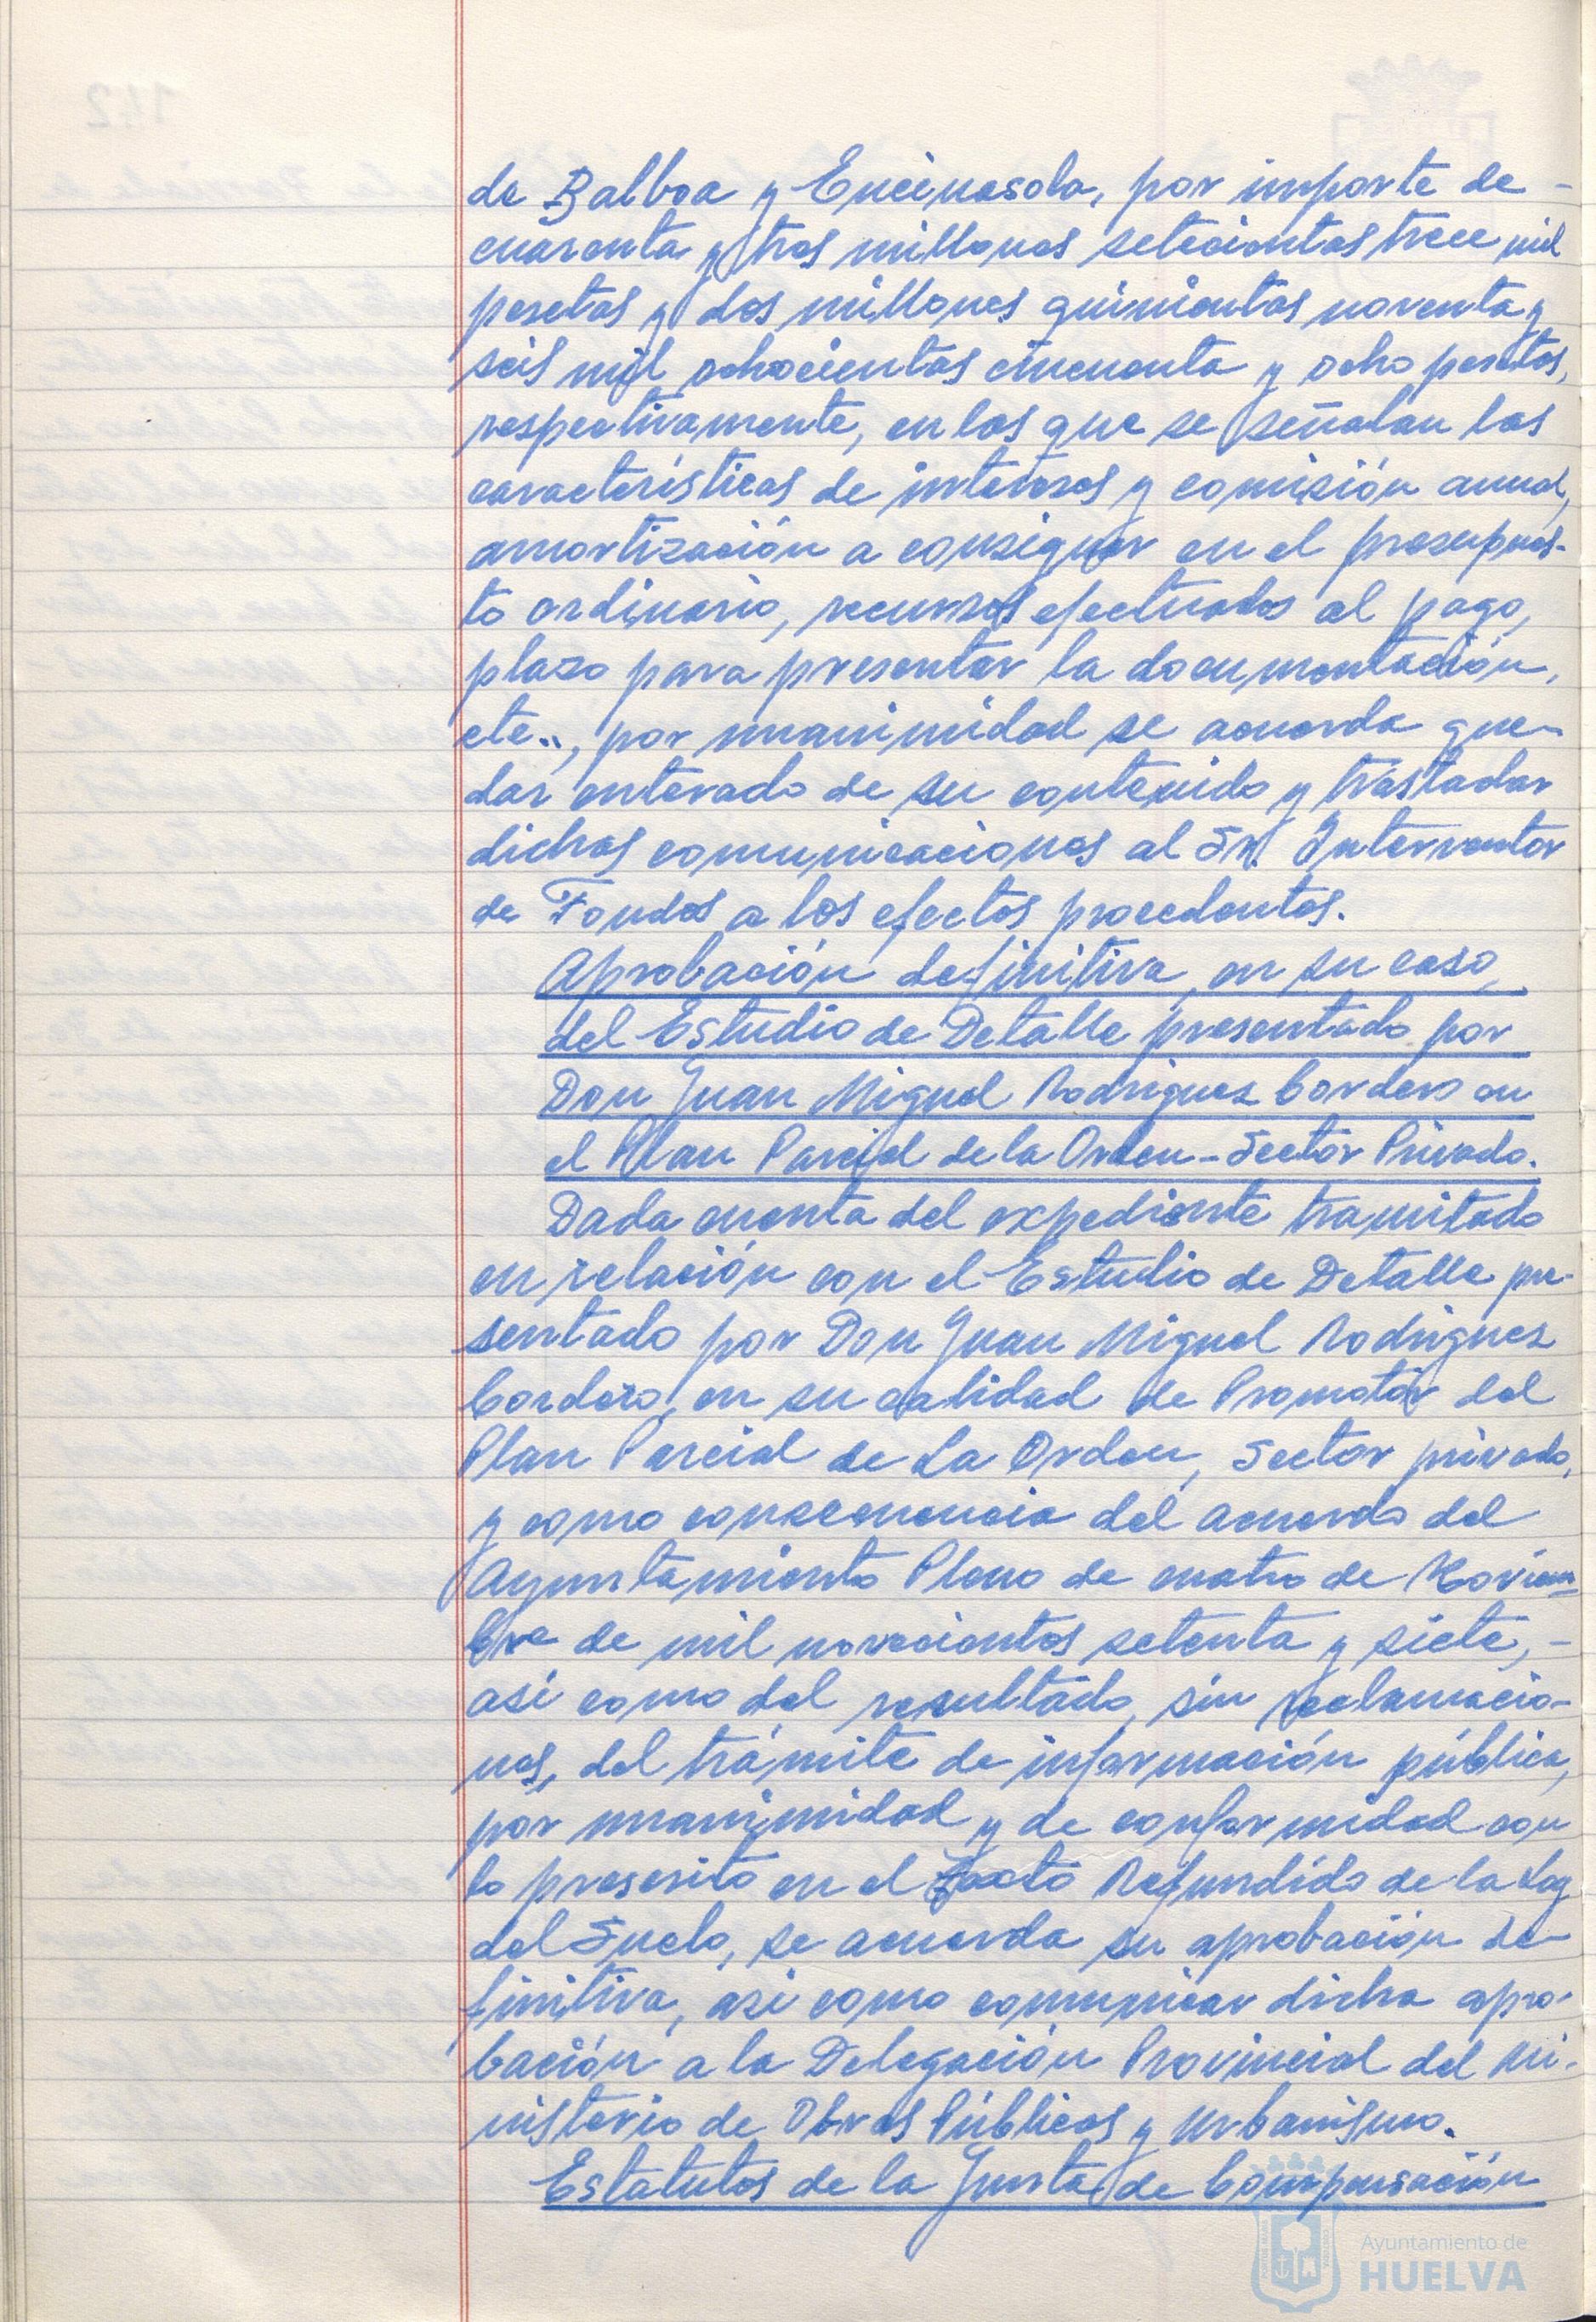 de Balboa y Encinasola, por importe de -
cuarenta y tres millones setecientas trece mil
pesetas y dos millones quinientas noventa y
seis mil ochocientas cincuenta y ocho pesetas,
respectivamente, en las que se señalan las
características de intereses y comisión anual,
amortización a consignar en el presupues-
to ordinario, recursos efectuados al pago,
plazo para presentar la documentación,
etc.., por unanimidad se acuerda que-
dar enterado de su contenido y trasladar
dichas comunicaciones al Sr. Interventor
de Fondos a los efectos procedentes.
Aprobación definitiva, en su caso,
del Estudio de Detalle presentado por
Don Juan Miguel Rodriguez Cordero en
el Plan Parcial de la Orden-Sector Privado.
Dada cuenta del expediente tramitado
en relación con el Estudio de Detalle pre-
sentado por Don Juan Miguel Rodriguez
Cordero, en su calidad de Promotor del
Plan Parcial de La Orden, Sector privado,
y como consecuencia del acuerdo del
Ayuntamiento Pleno de cuatro de Noviem=
bre de mil novecientos setenta y siete, -
asi como del resultado, sin reclamacio-
nes, del trámite de información pública,
por unanimidad y de conformidad con
lo prescrito en el Texto Refundido de la Ley
del Suelo, se acuerda su aprobación de-
finitiva, asi como comunicar dicha apro-
bación a la Delegación Provincial del Mi-
nisterio de Obras Públicas y Urbanismo.
Estatutos de la Junta de Compensación
Ayuntamiento de
HUELVA